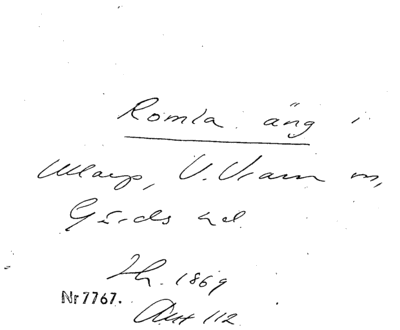 Romla äng i
Ullarp, V. Vram sn,
Gärds hd.
Th. 1869
Nr 7767.
Akt 112